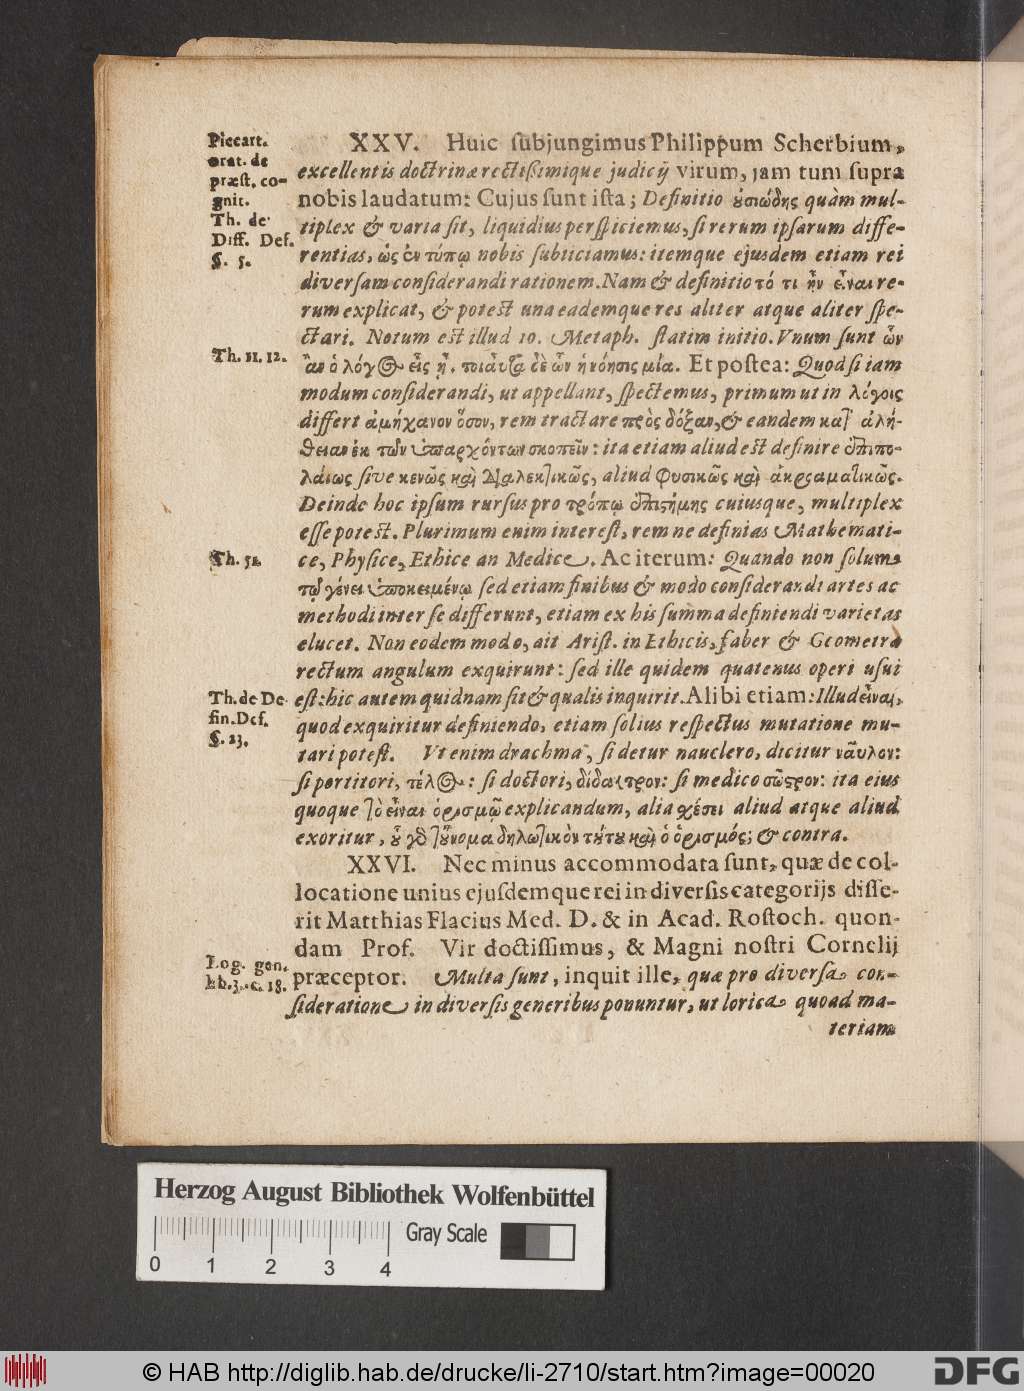 Piccart.
orat. de
præst. co-
gnit.
Th. de
Diff. Def.
§. 5.
XXV. Huic subjungimus Philippum Scherbium,
excellentis doctrinæ rectißimique judicij virum, jam tum supra
nobis laudatum: Cujus sunt ista; Definitio ȣ̓σιώδης quàm mul-
tiplex & varia sit, liquidius perspiciemus, si rerum ipsarum diffe-
rentias, ὡς ἐν τύπῳ nobis subiiciamus: itemque ejusdem etiam rei
diversam considerandi rationem. Nam & definitio τό τι ἦν εἶναι re-
rum explicat, & potest una eademque res aliter atque aliter spe-
ctari. Notum est illud 10. Metaph. statim initio. Vnum sunt ὧν
Th. 11. 12.
ἂν ὁ λόγος εἷς ᾖ. τοιαῦτα δὲ ὧν ἡ νόησις μία. Et postea: Quod si iam
modum considerandi, ut appellant, spectemus, primum ut in λόγοις
differt ἀμήχανον ὅσον, rem tractare πρὸς δόξαν, & eandem κατ' ἀλή-
θειαν ἐκ τῶν ὑπαρχόντων σκοπεῖν: ita etiam aliud est definire ἐπιπο-
λαίως sive κενῶς καὶ διαλεκτικῶς, aliud φυσικῶς καὶ ἀκροαματικῶς.
Deinde hoc ipsum rursus pro τρόπῳ ἐπιστήμης cuiusque, multiplex
esse potest. Plurimum enim interest, rem ne definias Mathemati-
Th. 51.
ce, Physice, Ethice an Medice. Ac iterum: Quando non solum
τῷ γένει ὑποκειμένῳ sed etiam finibus & modo considerandi artes ac
methodi inter se differunt, etiam ex his summa definiendi varietas
elucet. Non eodem modo, ait Arist. in Ethicis, faber & Geometra
rectum angulum exquirunt: sed ille quidem quatenus operi usui
Th. de De-
fin. Def.
§. 23.
est: hic autem quidnam sit & qualis inquirit. Alibi etiam: Illud εἶναι,
quod exquiritur definiendo, etiam solius respectus mutatione mu-
tari potest. Vt enim drachma, si detur nauclero, dicitur ναῦλον:
si portitori, τέλος: si doctori, δίδακτρον: si medico σῶστρον: ita eius
quoque τὸ εἶναι ὁρισμῷ explicandum, alia σχέσει aliud atque aliud
exoritur, ȣ̔͂ γὸ τȣ̓́νομα δηλωτικὸν τȣ́τȣ καὶ ὁ ὁρισμός; & contra.
XXVI. Nec minus accommodata sunt, quæ de col-
locatione unius ejusdemque rei in diversis categorijs disse-
rit Matthias Flacius Med. D. & in Acad. Rostoch. quon-
dam Prof. Vir doctissimus, & Magni nostri Cornelij
Log. gen.
lib. 3. c. 18.
præceptor. Multa sunt, inquit ille, quæ pro diversa con-
sideratione in diversis generibus ponuntur, ut lorica quoad ma-
teriam
Herzog August Bibliothek Wolfenbüttel
Gray Scale
0 1 2 3 4
© HAB http://diglib.hab.de/drucke/li-2710/start.htm?image=00020
DFG